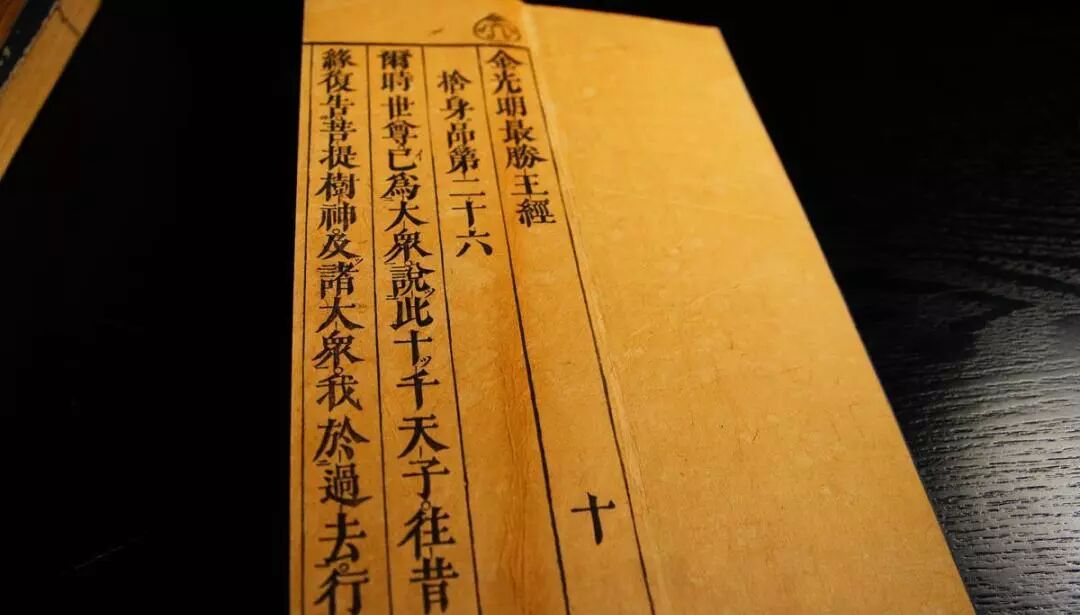 金光明最勝王經
十
捨身品第二十六
爾時世尊已爲大衆說此十千天子往昔
緣復告菩提樹神及諸大衆我於過去行